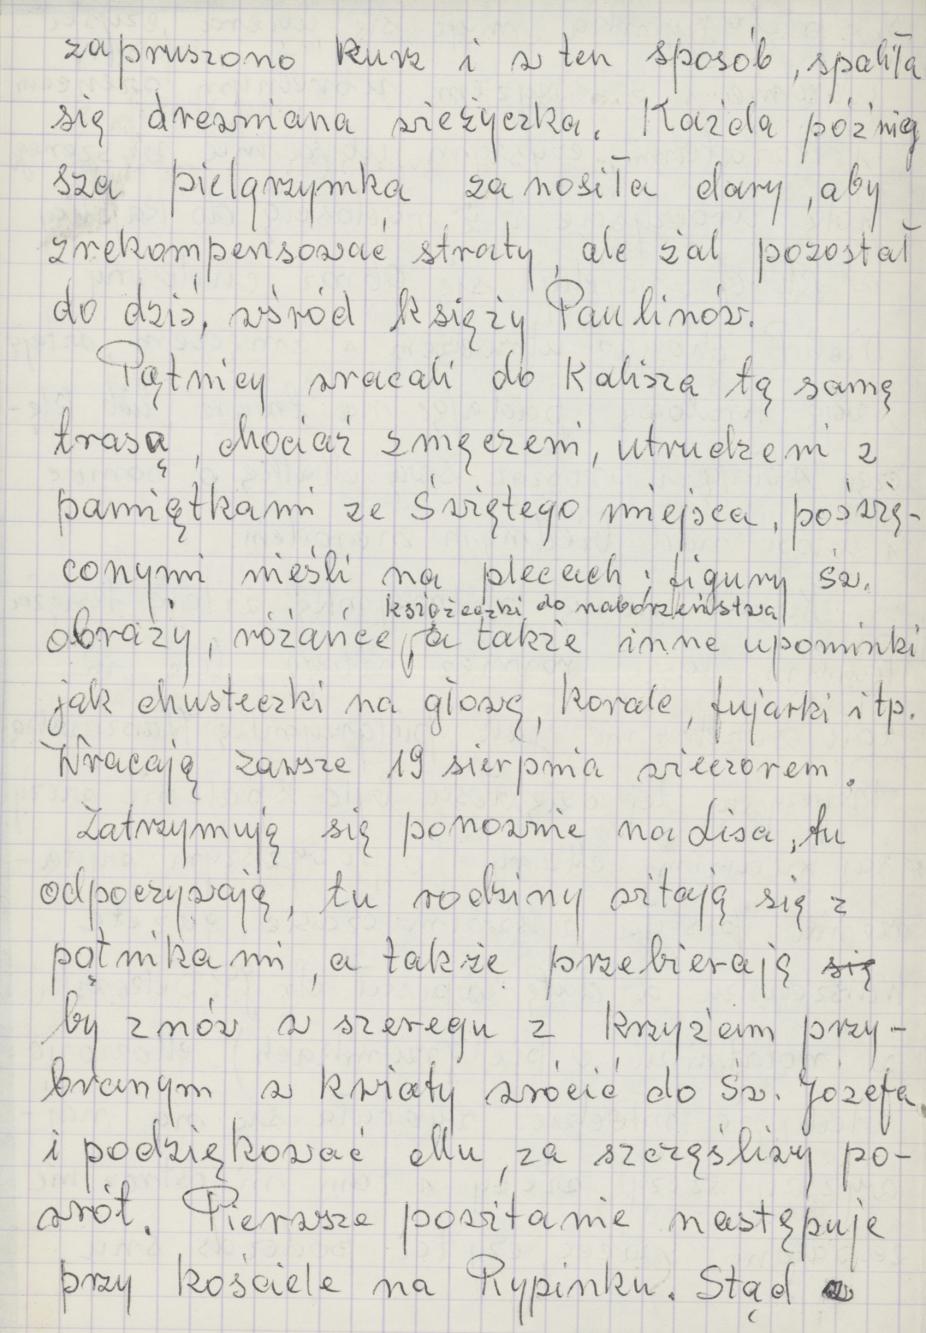 zapruszono kurz i w ten sposób, spaliła
się drewniana wieżyczka. Każda póżniej
sza pielgrzymka zanosiła dary, aby
zrekompensować straty, ale żal pozostał
do dziś, wśród księży Paulinów.
Pątnicy wracali do Kalisza tą samą
trasą, chociaż zmęczeni, utrudzeni z
pamiątkami ze Świętego miejsca, poświę-
conymi nieśli na plecach; figury św.
książeczki do nabożeństwa
obrazy, różańce, a także inne upominki
jak chusteczki na głowę, korale, fujarki itp.
Wracają zawsze 19 sierpnia wieczorem.
Zatrzymują się ponownie na Lisa, tu
odpoczywają, tu rodziny witają się z
pątnikami, a także przebierają się
by znów w szeregu z krzyżem przy-
branym w kwiaty wrócić do św. Józefa
i podziękować Mu, za szczęśliwy po-
wrót. Pierwsze powitanie następuje
przy kościele na Rypinku. Stąd